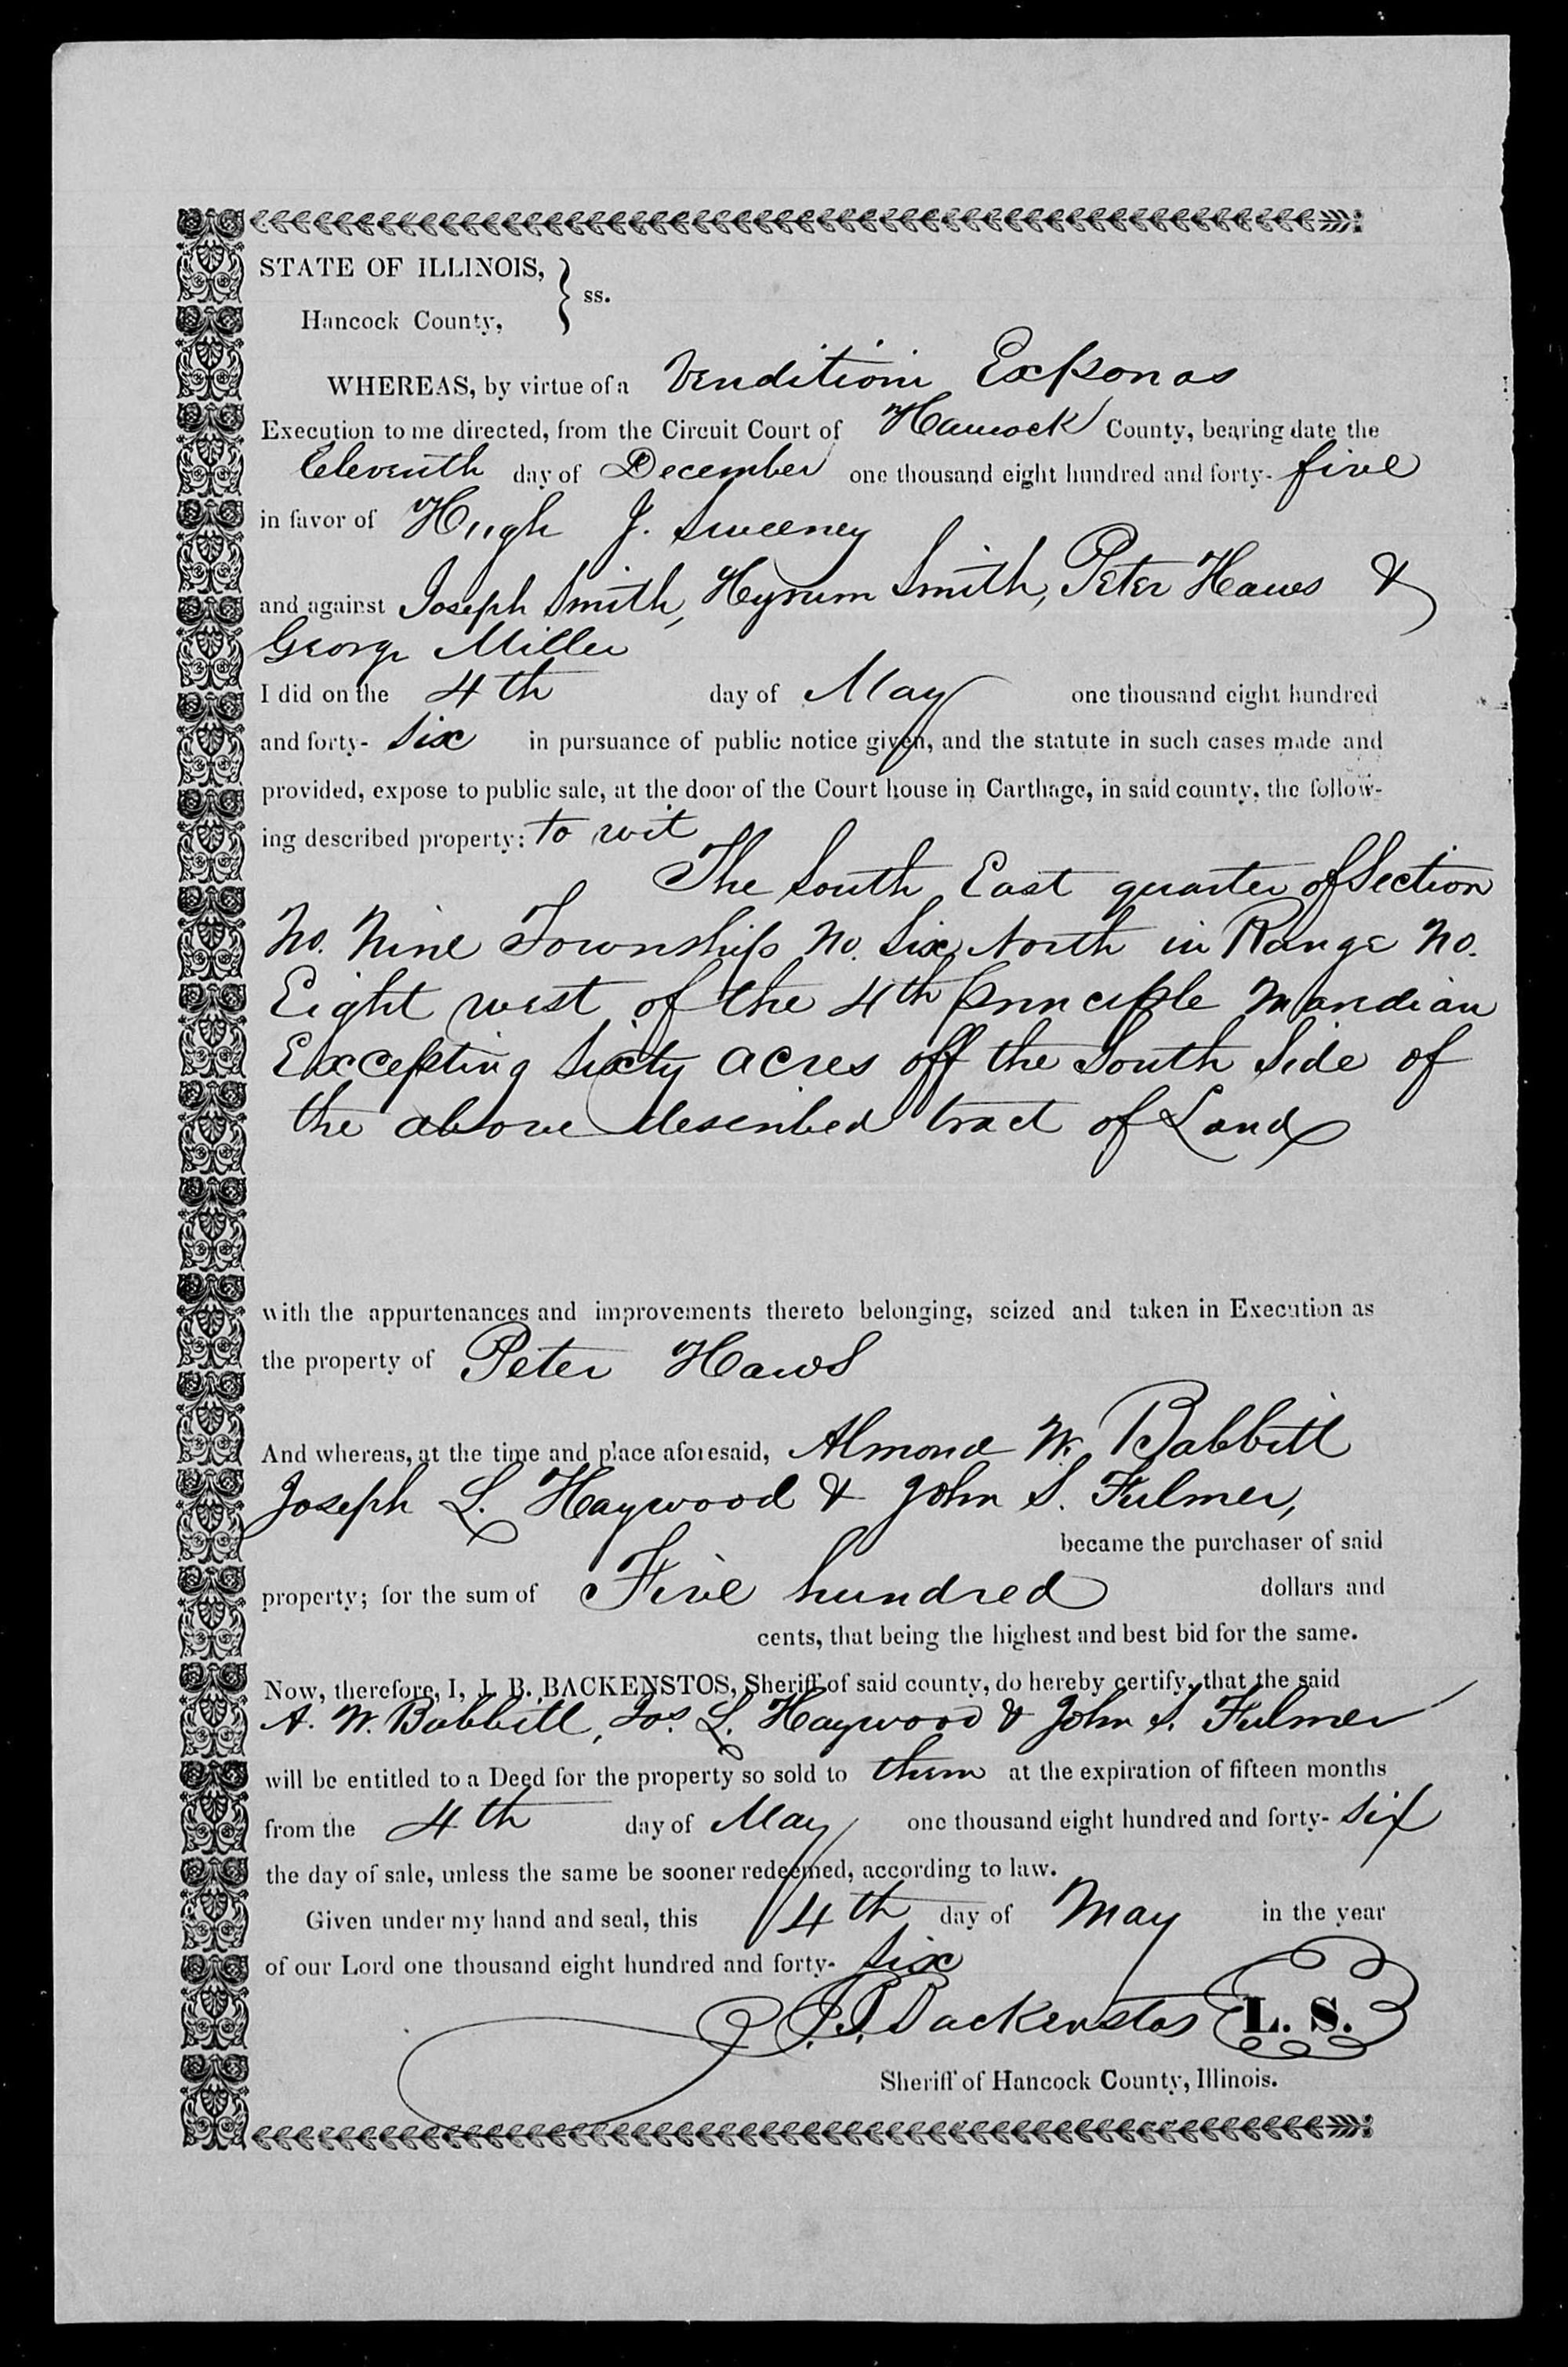 STATE OF ILLINOIS, } ss.
Hancock County,
WHEREAS, by virtue of a Venditioni Exponas
Execution to me directed, from the Circuit Court of Hancock County, bearing date the
Eleventh day of December one thousand eight hundred and forty- five
in favor of Hugh J. Sweeney
and against Joseph Smith, Hyrum Smith, Peter Haws &
George Miller
I did on the 4th day of May one thousand eight hundred
and forty- six in pursuance of public notice given, and the statute in such cases made and
provided, expose to public sale, at the door of the Court house in Carthage, in said county, the follow-
ing described property: to wit
The South East quarter of Section
No. Nine Township No. Six North in Range No.
Eight west of the 4th Principle Maredian
Excepting Sixty acres off the South Side of
the above described tract of Land
with the appurtenances and improvements thereto belonging, seized and taken in Execution as
the property of Peter Haws
And whereas, at the time and place aforesaid, Almond W. Babbitt
Joseph L. Haywood & John S. Fulmer,
became the purchaser of said
property; for the sum of Five hundred dollars and
cents, that being the highest and best bid for the same.
Now, therefore, I, J. B. BACKENSTOS, Sheriff of said county, do hereby certify, that the said
A. W. Babbitt, Jos. L. Haywood & John S. Fulmer
will be entitled to a Deed for the property so sold to them at the expiration of fifteen months
from the 4th day of May one thousand eight hundred and forty- six
the day of sale, unless the same be sooner redeemed, according to law.
Given under my hand and seal, this 4th day of May in the year
of our Lord one thousand eight hundred and forty- six
J. B. Backenstos L. S.
Sheriff of Hancock County, Illinois.